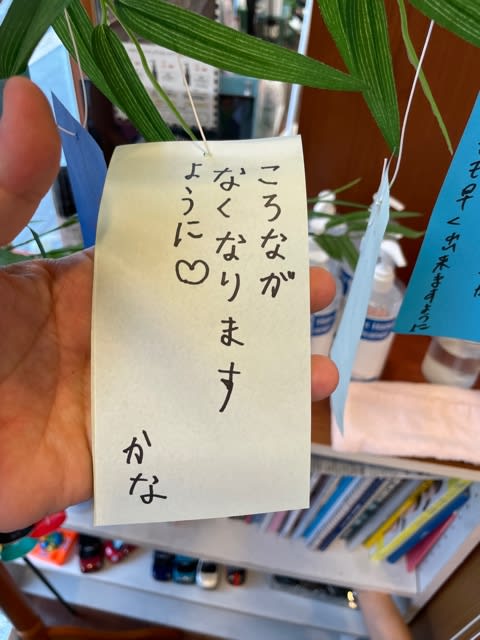 ころなが
なくなります
ように♡
かな
も早く出来ますように